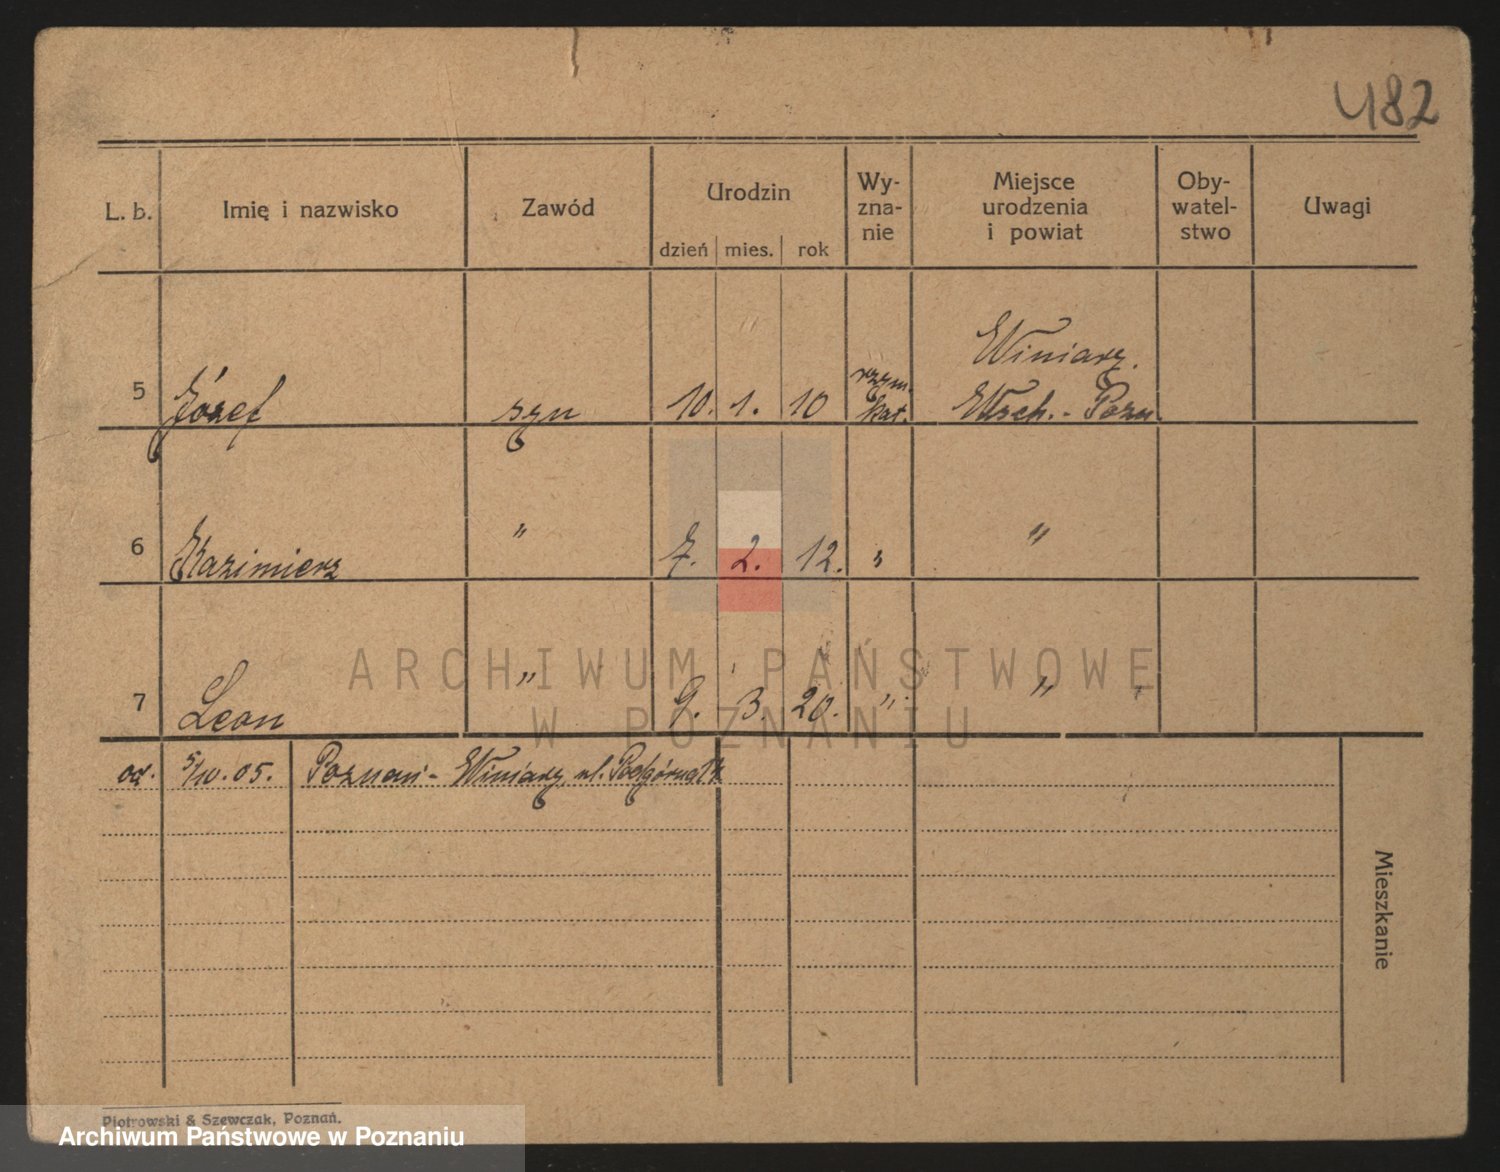 482
L. b. Imię i nazwisko Zawód Urodzin Wy-zna-nie Miejsce urodzenia i powiat Oby-watel-stwo Uwagi
dzień mies. rok
Winiary.
5 Józef syn 10. 1. 10 rzym. kat. Wsch. - Pozn.
6 Kazimierz " 7. 2. 12. " "
7 Leon " 9. 3. 20. " "
ARCHIWUM PAŃSTWOWE
W POZNANIU
od. 5/10.05. Poznań - Winiary, ul. Podgórna
Mieszkanie
Piotrowski & Szewczak, Poznań.
Archiwum Państwowe w Poznaniu